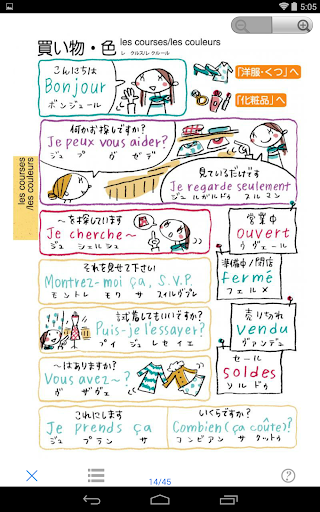 5:05
買い物・色
les courses/les couleurs
レ クルス/レ クルール
こんにちは
Bonjour
ボンジュール
「洋服・くつ」へ
「化粧品」へ
les courses
/les couleurs
何かお探しですか?
Je peux vous aider?
ジュ プ ヴ ゼデ
見ているだけです
Je regarde seulement
ジュ ルガルドゥ スルマン
〜を探しています
Je cherche〜
ジュ シェルシュ
営業中
ouvert
ウヴェール
それを見せて下さい
Montrez-moi ça, S.V.P.
モントレ モワ サ スィルヴプレ
準備中/閉店
fermé
フェルメ
試着してもいいですか?
Puis-je l'essayer?
プイ ジュ レセイエ
売り切れ
vendu
ヴァンデュ
〜はありますか?
Vous avez〜?
ヴ ザヴェ
セール
soldes
ソルドゥ
これにします
Je prends ça
ジュ プラン サ
いくらですか?
Combien(ça coûte)?
コンビアン サ クットゥ
14/45